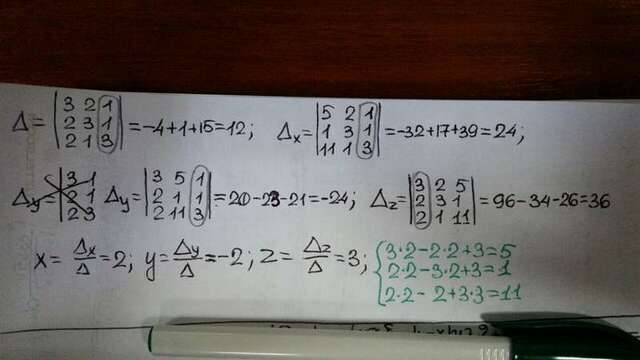 Δ = |3 2 1; 2 3 1; 2 1 3| = -4+1+15=12; Δx = |5 2 1; 1 3 1; 11 1 3| = -32+17+39=24;
Δy = |3 1; 2 1; 2 3| Δy = |3 5 1; 2 1 1; 2 11 3| = 20-23-21=-24; Δz = |3 2 5; 2 3 1; 2 1 11| = 96-34-26=36
x = Δx/Δ = 2; y = Δy/Δ = -2; z = Δz/Δ = 3; {3·2-2·2+3=5
2·2-3·2+3=1
2·2-2+3·3=11